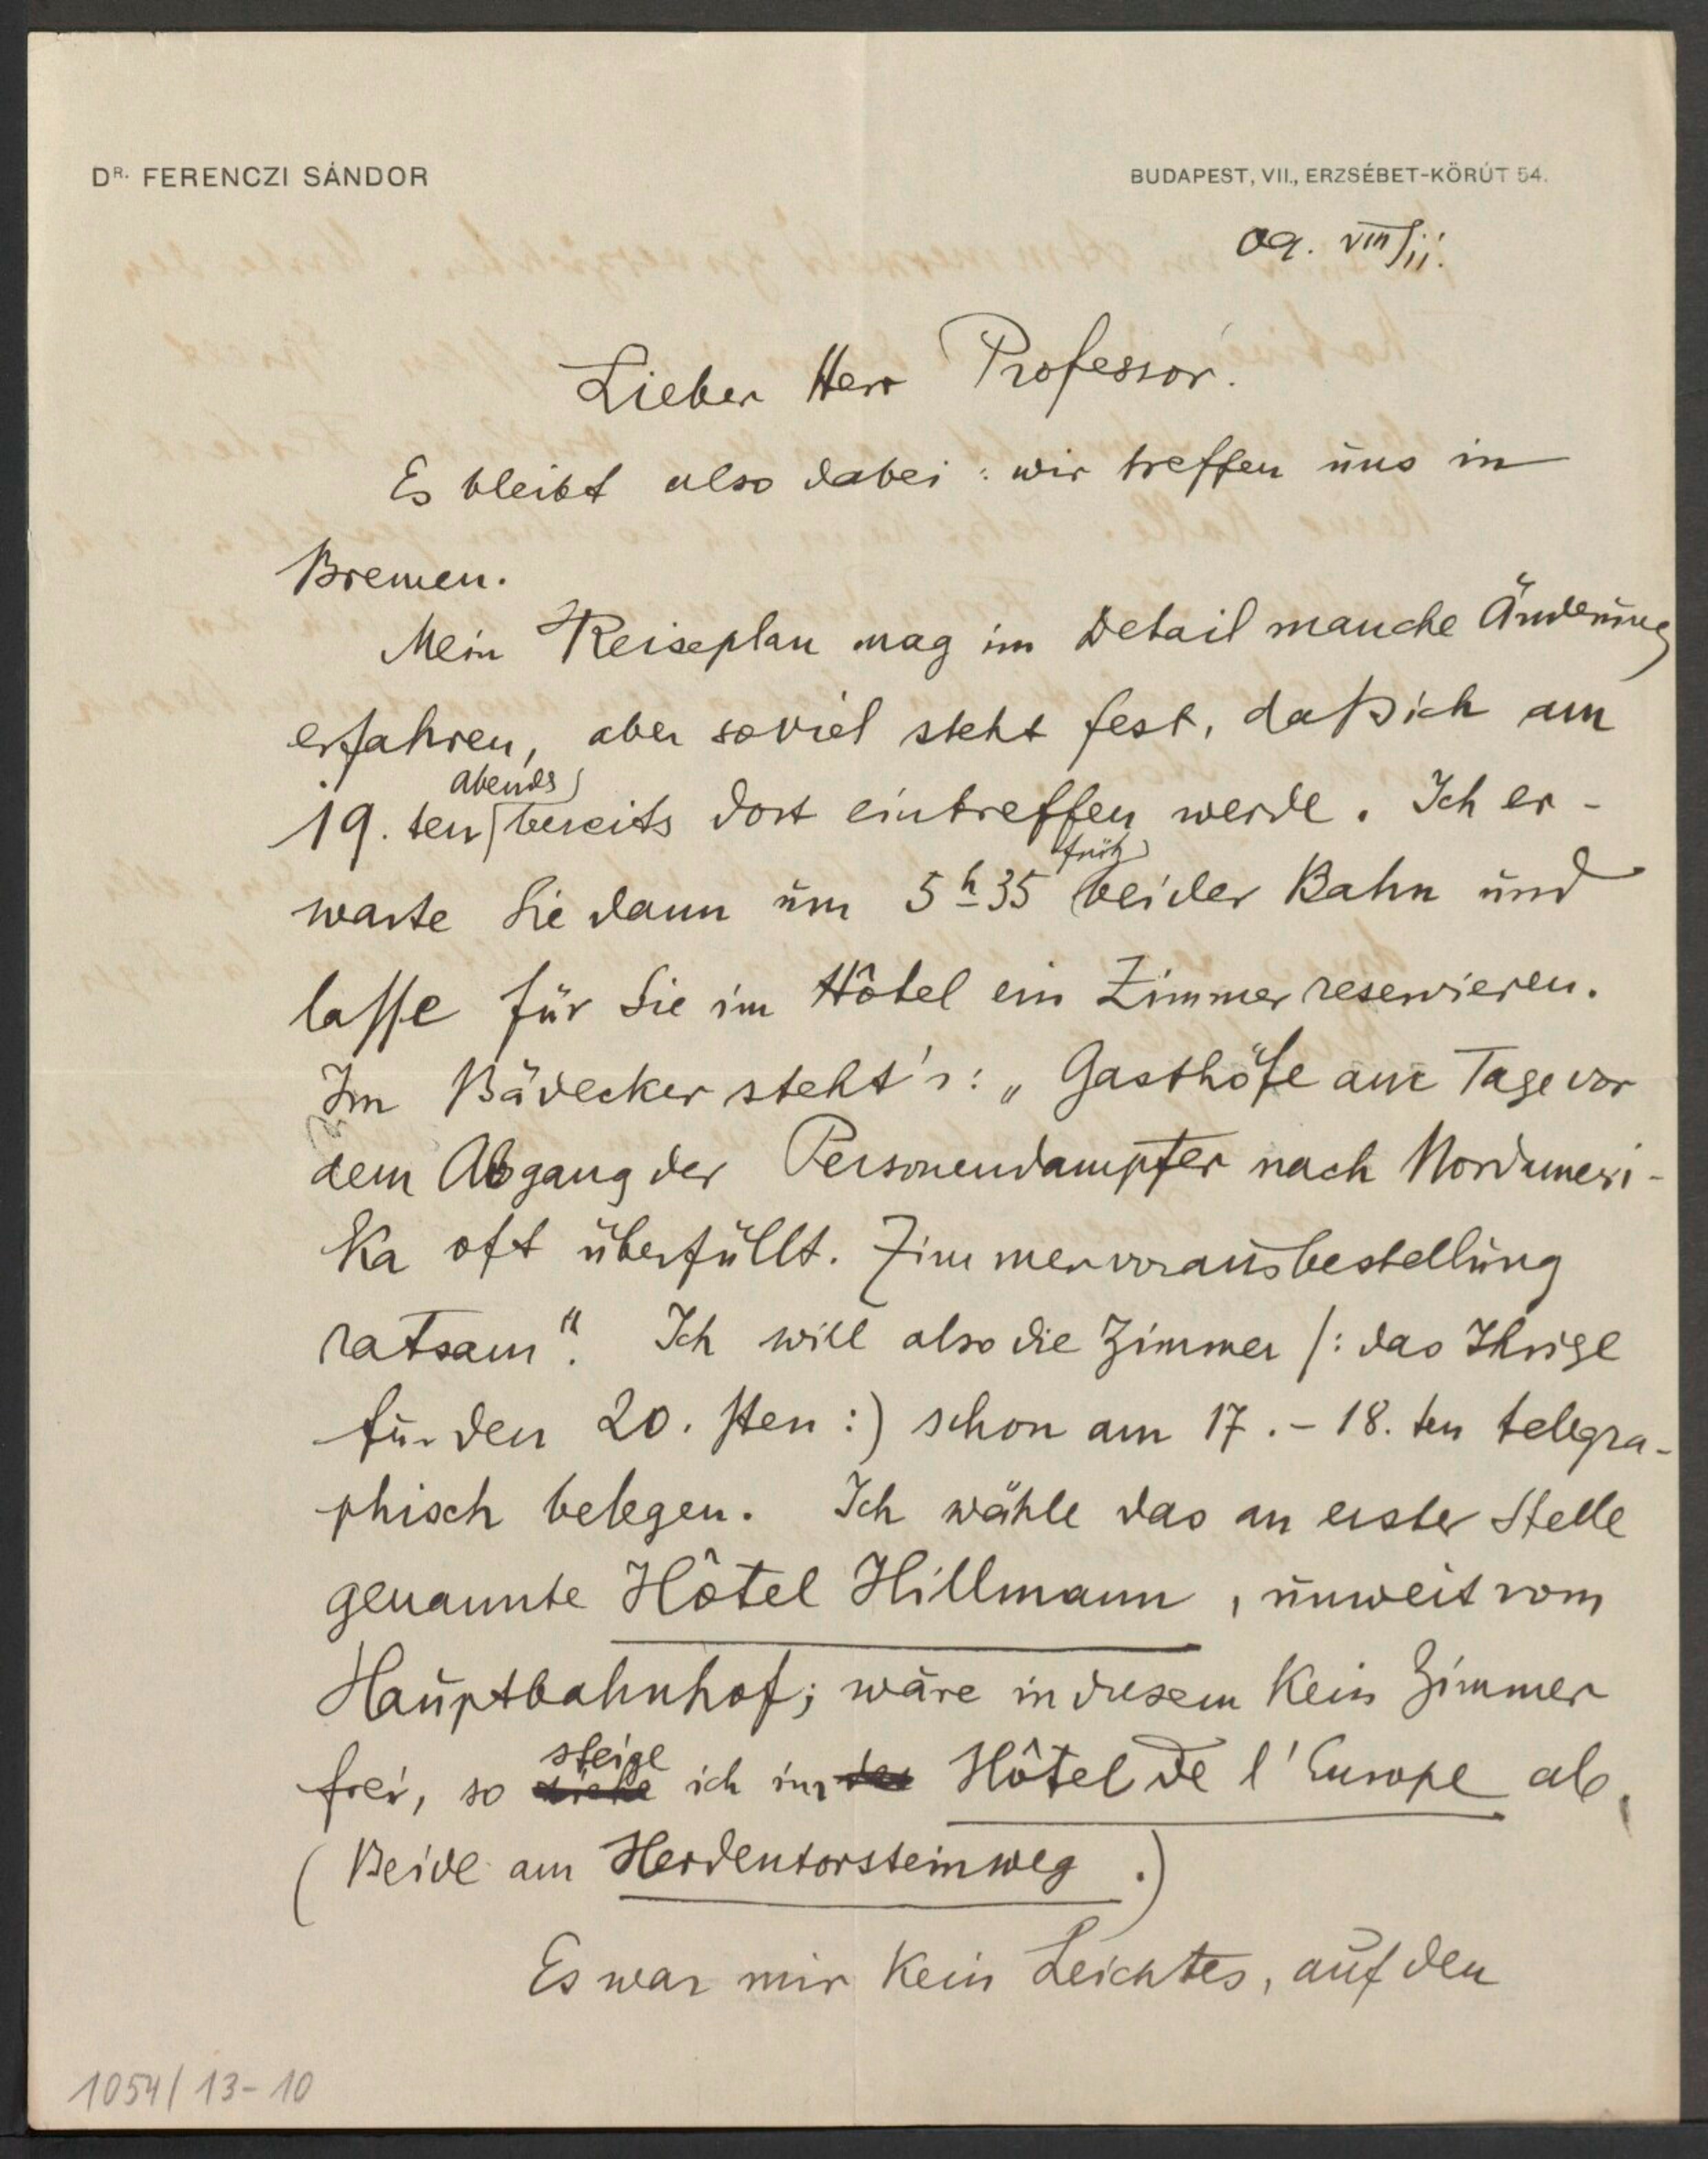 DR. FERENCZI SÁNDOR
BUDAPEST, VII., ERZSÉBET-KÖRÚT 54.
09. VIII/11.
Lieber Herr Professor.
Es bleibt also dabei: wir treffen uns in
Bremen.
Mein Reiseplan mag im Detail manche Änderung
erfahren, aber soviel steht fest, daß ich am
abends
19. ten bereits dort eintreffen werde. Ich er-
früh
warte Sie dann um 5 h 35 bei der Bahn und
lasse für Sie im Hôtel ein Zimmer reservieren.
Im Bädecker steht's: „Gasthöfe am Tage vor
dem Abgang der Personendampfer nach Nordameri-
ka oft überfüllt. Zimmervorausbestellung
ratsam“. Ich will also die Zimmer /: das Ihrige
für den 20. sten :) schon am 17.-18. ten telegra-
phisch belegen. Ich wähle das an erster Stelle
genannte Hôtel Hillmann, unweit vom
Hauptbahnhof; wäre in diesem kein Zimmer
steige
frei, so ich im Hôtel de l'Europe ab.
(Beide am Herdentorsteinweg.)
Es war mir kein Leichtes, auf den
1054/13-10